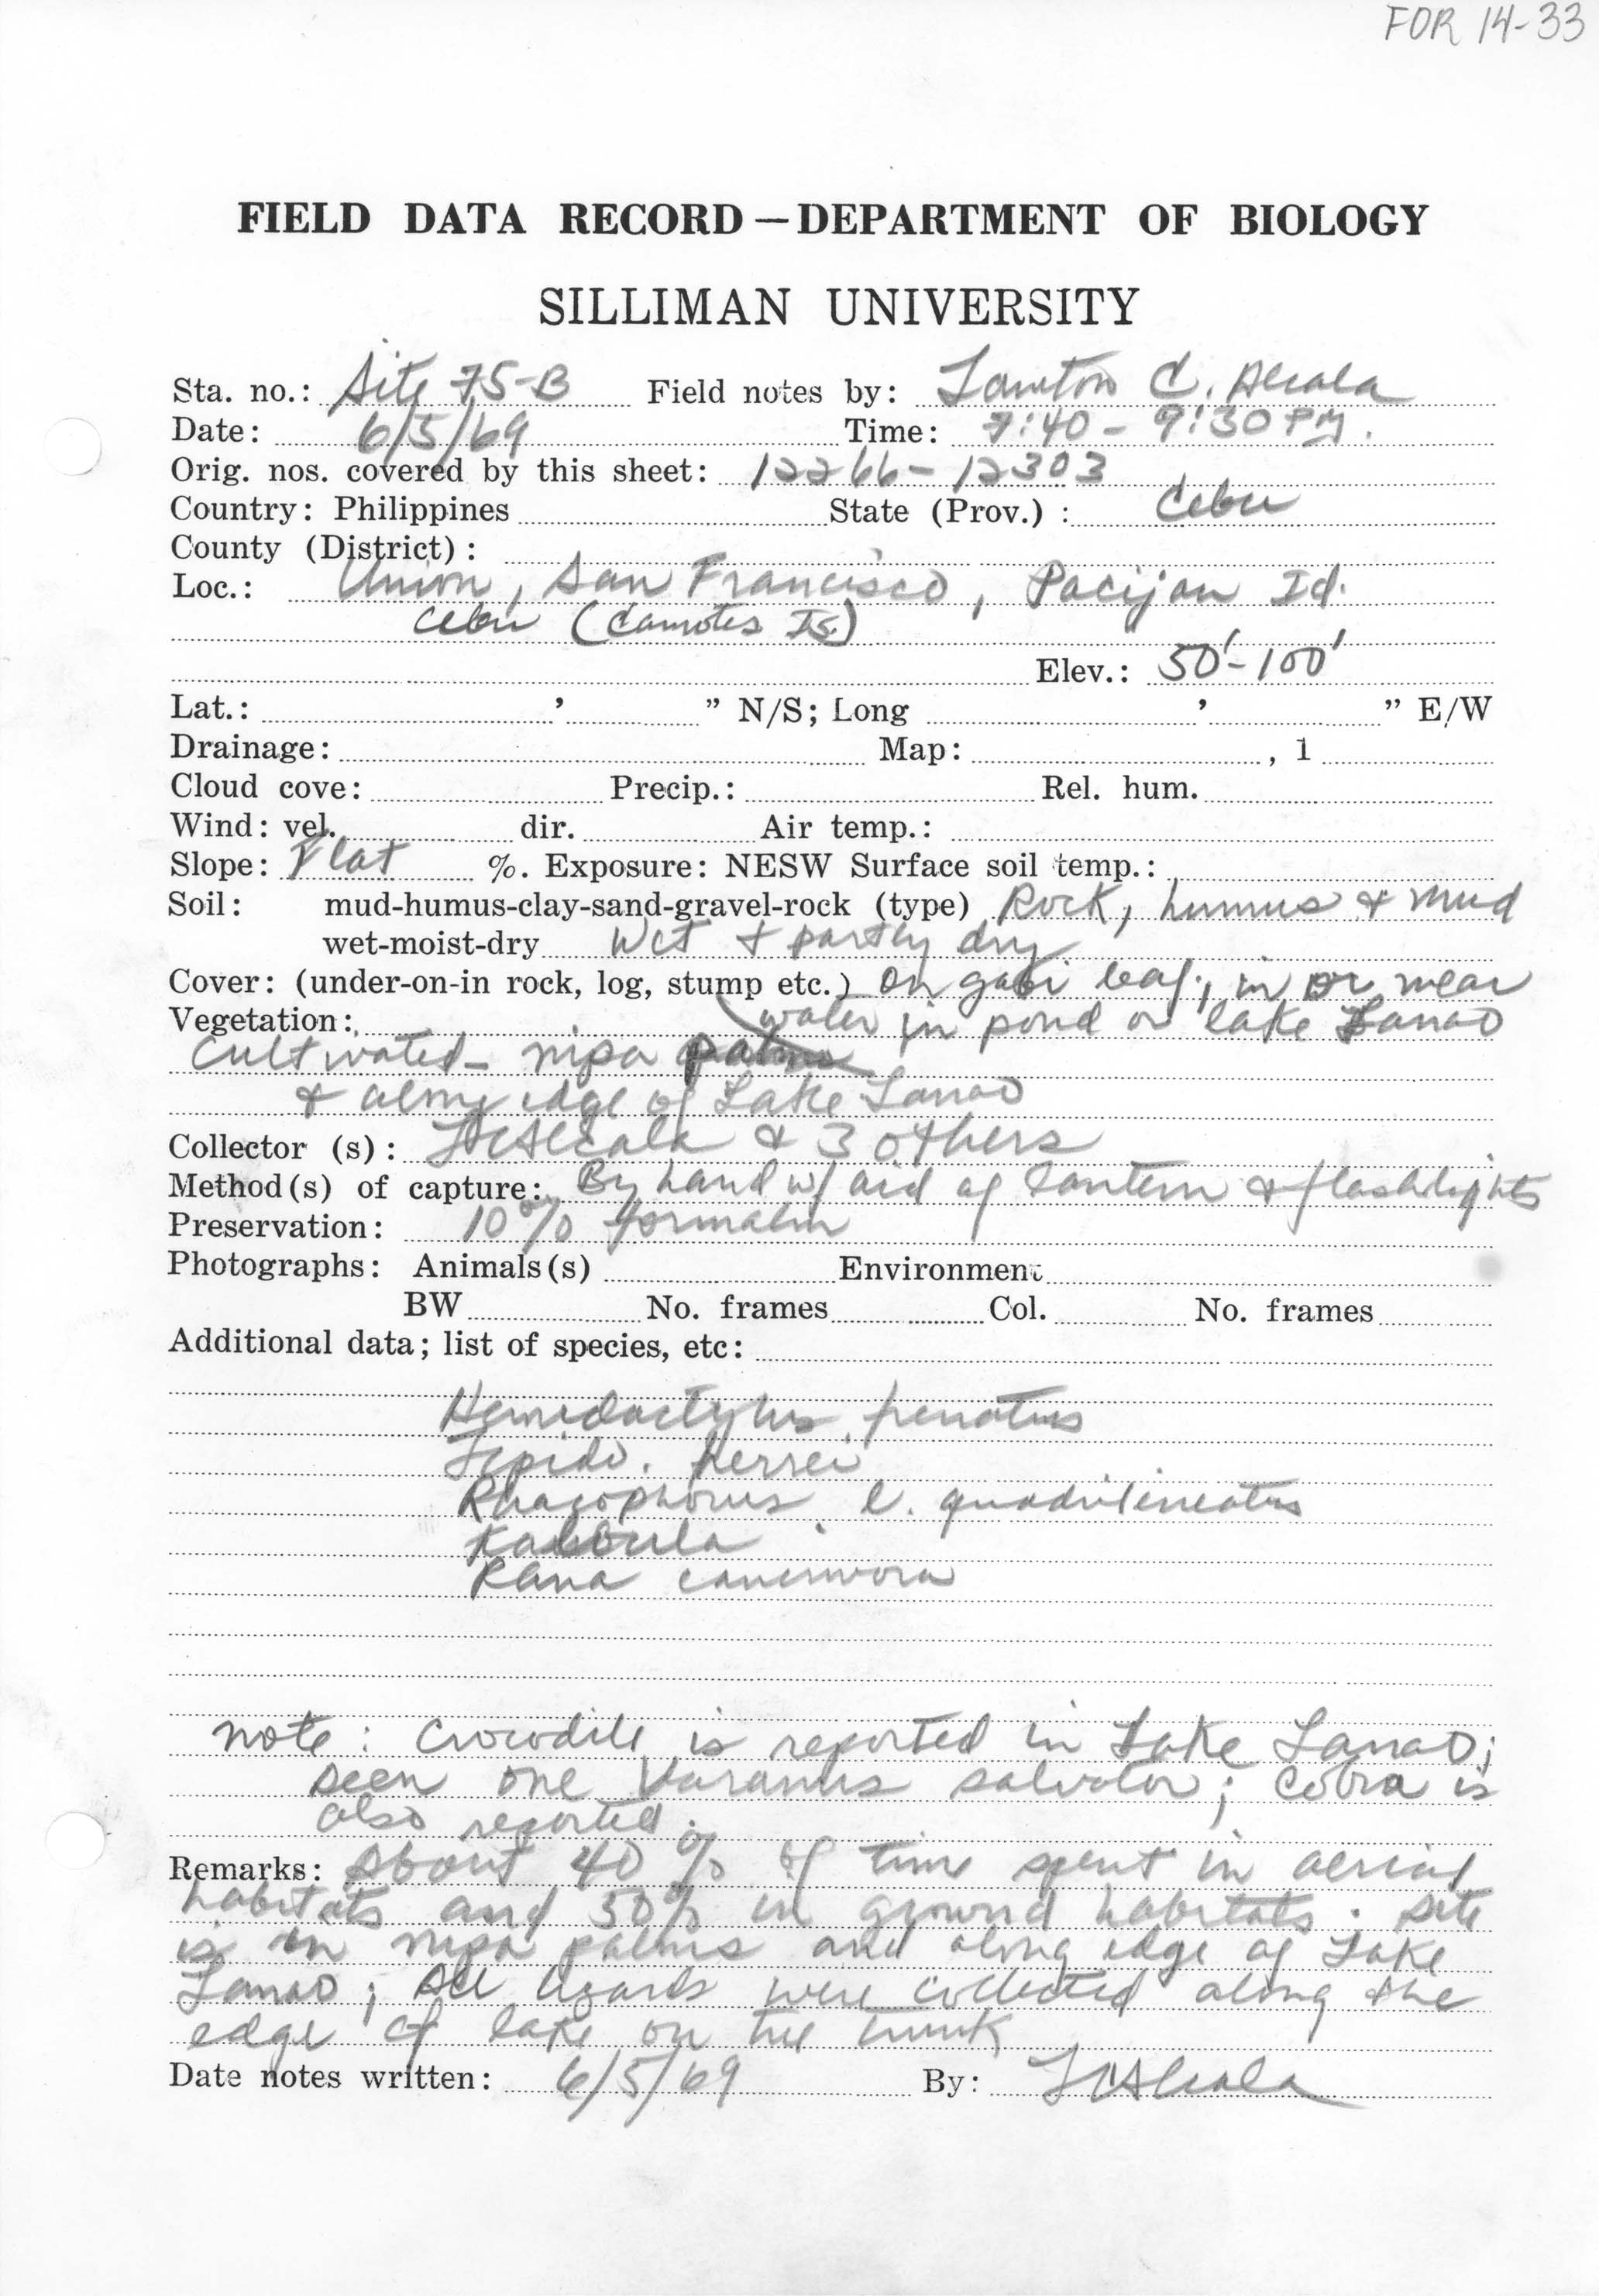 FOR 14-33
FIELD DATA RECORD — DEPARTMENT OF BIOLOGY
SILLIMAN UNIVERSITY
Sta. no.: Site 75-B Field notes by: Lawton C. Alcala
Date: 6/5/69 Time: 7:40 - 9:30 PM.
Orig. nos. covered by this sheet: 12266 - 12303
Country: Philippines State (Prov.) : Cebu
County (District) :
Loc.: Union, San Francisco, Pacijan Id.
Cebu (Camotes Is.)
Elev.: 50'-100'
Lat.: ' " N/S; Long ' " E/W
Drainage: Map: , 1
Cloud cove: Precip.: Rel. hum.
Wind: vel. dir. Air temp.:
Slope: Flat %. Exposure: NESW Surface soil temp.:
Soil: mud-humus-clay-sand-gravel-rock (type) Rock, humus & mud
wet-moist-dry Wet & partly dry
Cover: (under-on-in rock, log, stump etc.) On gabi leaf; in or near
Vegetation: water in pond or lake Lanao
Cultivated - nipa palms
& along edge of Lake Lanao
Collector (s) : LCAlcala & 3 others
Method(s) of capture: By hand w/ aid of lantern & flashlights
Preservation: 10% formalin
Photographs: Animals(s) Environment
BW No. frames Col. No. frames
Additional data; list of species, etc:
Hemidactylus frenatus
Lepido. herrei
Rhacophorus l. quadrilineatus
Kaloula
Rana cancrivora
note: Crocodile is reported in Lake Lanao;
seen one Varanus salvator; Cobra is
also reported.
Remarks: About 40% of time spent in aerial
habitats and 50% in ground habitats. Site
is in nipa palms and along edge of Lake
Lanao; All lizards were collected along the
edge of lake on tree trunk
Date notes written: 6/5/69 By: LCAlcala